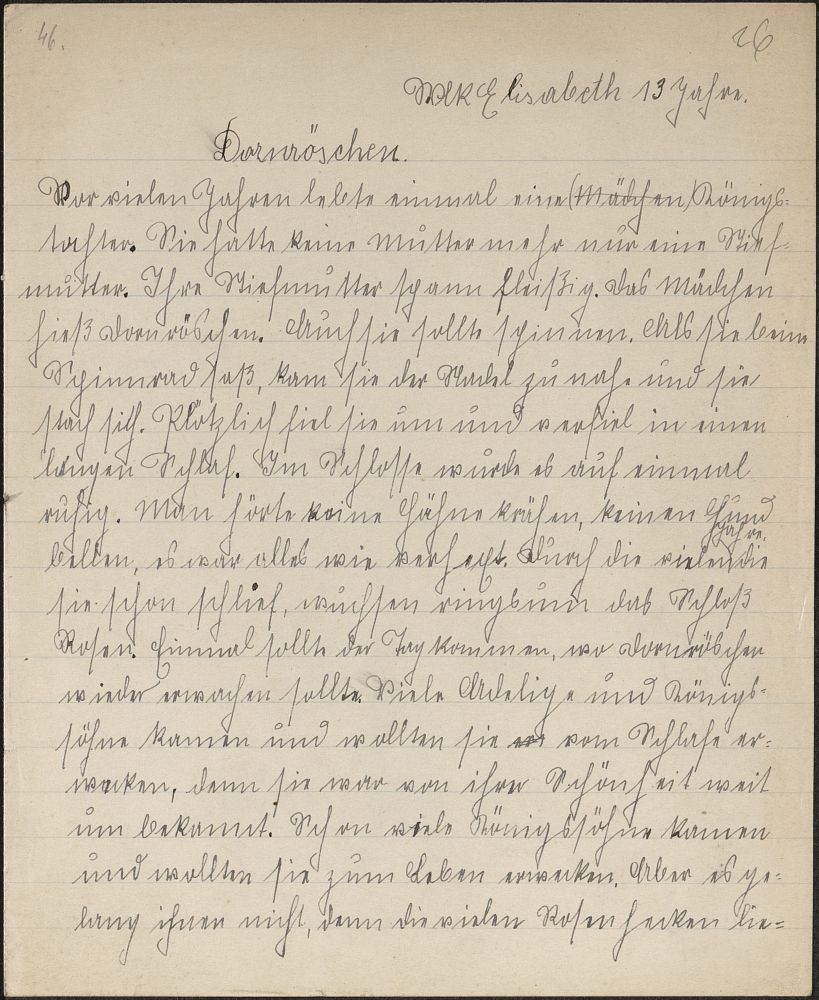 46.
26
Elisabeth 13 Jahre.
Dornröschen.
Vor vielen Jahren lebte einmal eine (Mädchen) Königs-
tochter. Sie hatte keine Mutter mehr nur eine Stief-
mutter. Ihre Stiefmutter spann fleißig. Das Mädchen
hieß Dornröschen. Auch sie sollte spinnen. Als sie beim
Spinnrad saß, kam sie der Nadel zu nahe und sie
stach sich. Plötzlich fiel sie um und verfiel in einen
langen Schlaf. Im Schlosse wurde es auf einmal
ruhig. Man hörte keine Hähne krähen, keinen Hund
bellen, es war alles wie verhext. Durch die vielen Jahre, die
sie schon schlief, wuchsen ringsum das Schloß
Rosen. Einmal sollte der Tag kommen, wo Dornröschen
wieder erwachen sollte. Viele Adelige und Königs-
söhne kamen und wollten sie vom Schlafe er-
wecken, denn sie war von ihrer Schönheit weit
um bekannt. Schon viele Königssöhne kamen
und wollten sie zum Leben erwecken. Aber es ge-
lang ihnen nicht, denn die vielen Rosenhecken lie-